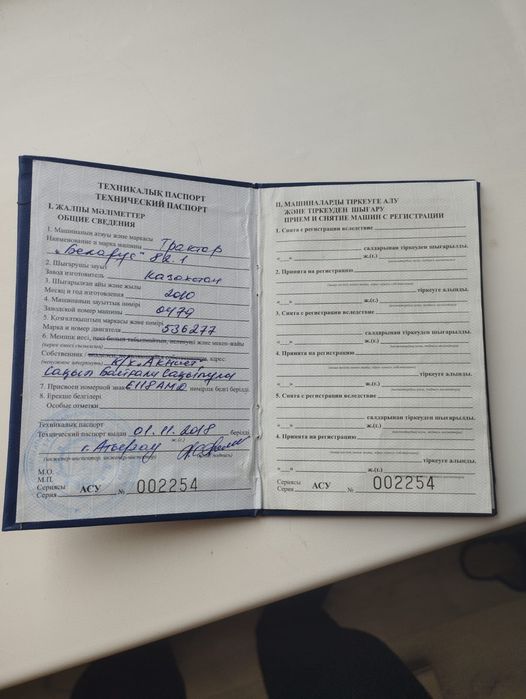 ТЕХНИКАЛЫҚ ПАСПОРТ
ТЕХНИЧЕСКИЙ ПАСПОРТ
I. ЖАЛПЫ МӘЛІМЕТТЕР
ОБЩИЕ СВЕДЕНИЯ
1. Машинаның атауы және маркасы
Наименование и марка машины Трактор
"Беларус" 82.1
2. Шығарушы зауыт
Завод изготовитель Казахстан
3. Шығарылған айы және жылы
Месяц и год изготовления 2010
4. Машинаның зауыттық нөмірі
Заводской номер машины 0479
5. Қозғалтқыштың маркасы және нөмірі
Марка и номер двигателя 536277
6. Меншік иесі,
Собственник адрес:
(ненужное зачеркнуть) К/х "Акниет"
7. Присвоен номерной знак E118AMD нөмірлік белгі берілді
8. Ерекше белгілері
Особые отметки
Техникалық паспорт
Технический паспорт выдан 01.11.2018 берілді
г. Атырау
М.О.
М.П.
Сериясы
Серия АСУ № 002254
II. МАШИНАЛАРДЫ ТІРКЕУГЕ АЛУ
ЖӘНЕ ТІРКЕУДЕН ШЫҒАРУ
ПРИЕМ И СНЯТИЕ МАШИН С РЕГИСТРАЦИИ
1. Снята с регистрации вследствие
салдарынан тіркеуден шығарылды.
«__» ж.(г.)
2. Принята на регистрацию
тіркеуге алынды.
«__» ж.(г.)
3. Снята с регистрации вследствие
салдарынан тіркеуден шығарылды.
«__» ж.(г.)
4. Принята на регистрацию
тіркеуге алынды.
«__» ж.(г.)
5. Снята с регистрации вследствие
салдарынан тіркеуден шығарылды.
«__» ж.(г.)
4. Принята на регистрацию
тіркеуге алынды.
«__» ж.(г.)
Сериясы
Серия АСУ № 002254